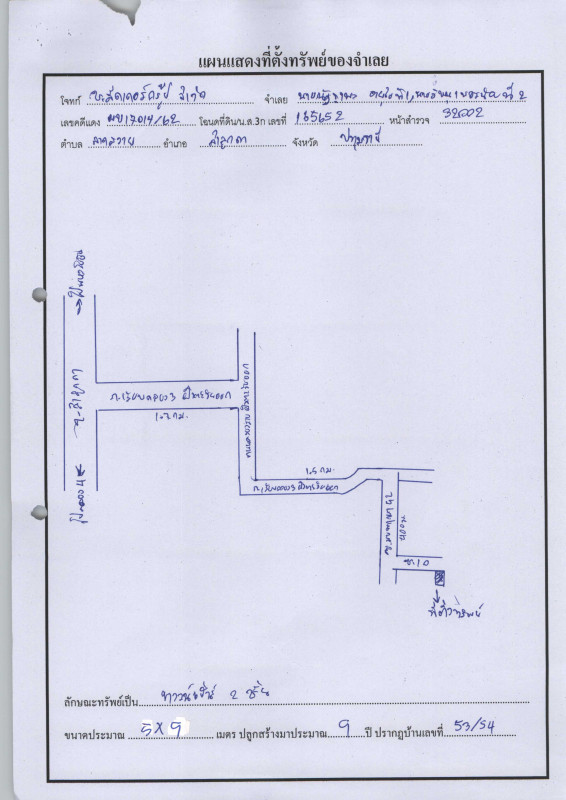 แผนแสดงที่ตั้งทรัพย์ของจำเลย
โจทก์ จำกัด จำเลย ที่ 2
เลขคดีแดง ผบ17014/62 โฉนดที่ดิน/น.ส.3ก เลขที่ 165652 หน้าสำรวจ 32002
ตำบล ลาดสวาย อำเภอ ลำลูกกา จังหวัด ปทุมธานี
ไปพหลโยธิน
ถ.ลำลูกกา
ไปคลอง 4
ถ.เลียบคลอง 3 ฝั่งตะวันออก
1.2 กม.
1.5 กม.
ถ.เลียบคลอง 3 ฝั่งตะวันออก
ซ.10
ที่ตั้งทรัพย์
ลักษณะทรัพย์เป็น ทาวน์เฮ้าส์ 2 ชั้น
ขนาดประมาณ 5X9 เมตร ปลูกสร้างมาประมาณ 9 ปี ปรากฏบ้านเลขที่ 53/54